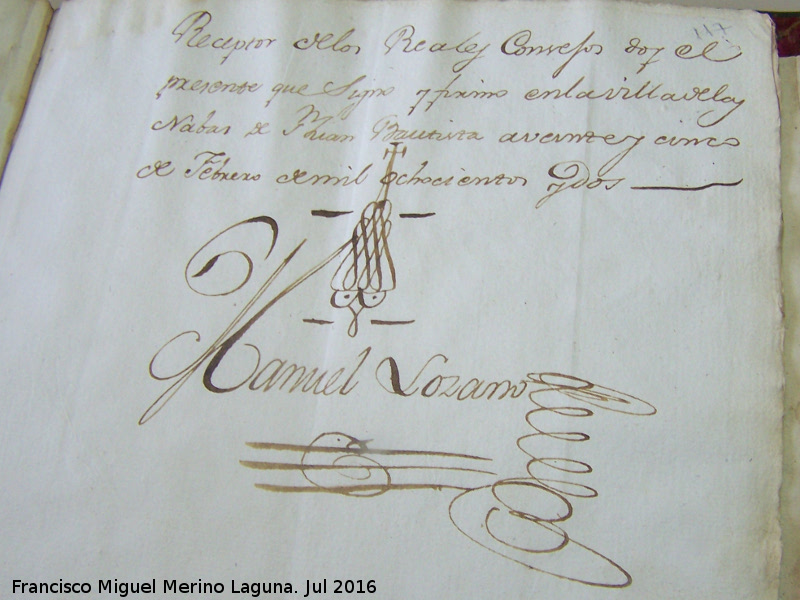 117
Receptor delos Reales Consejos doy el
presente que Signo y firmo enlavilladelas
Nabas de Sn Juan Bautista aveinte y cinco
de Febrero demil ochocientos ydos
Manuel Lozano
Francisco Miguel Merino Laguna. Jul 2016